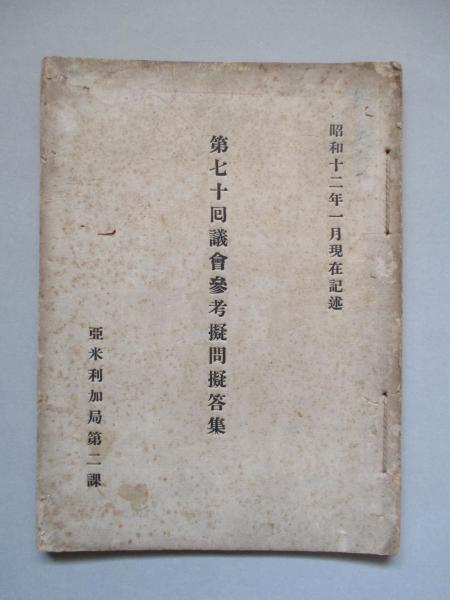 昭和十二年一月現在記述
第七十囘議會參考擬問擬答集
亞米利加局第二課